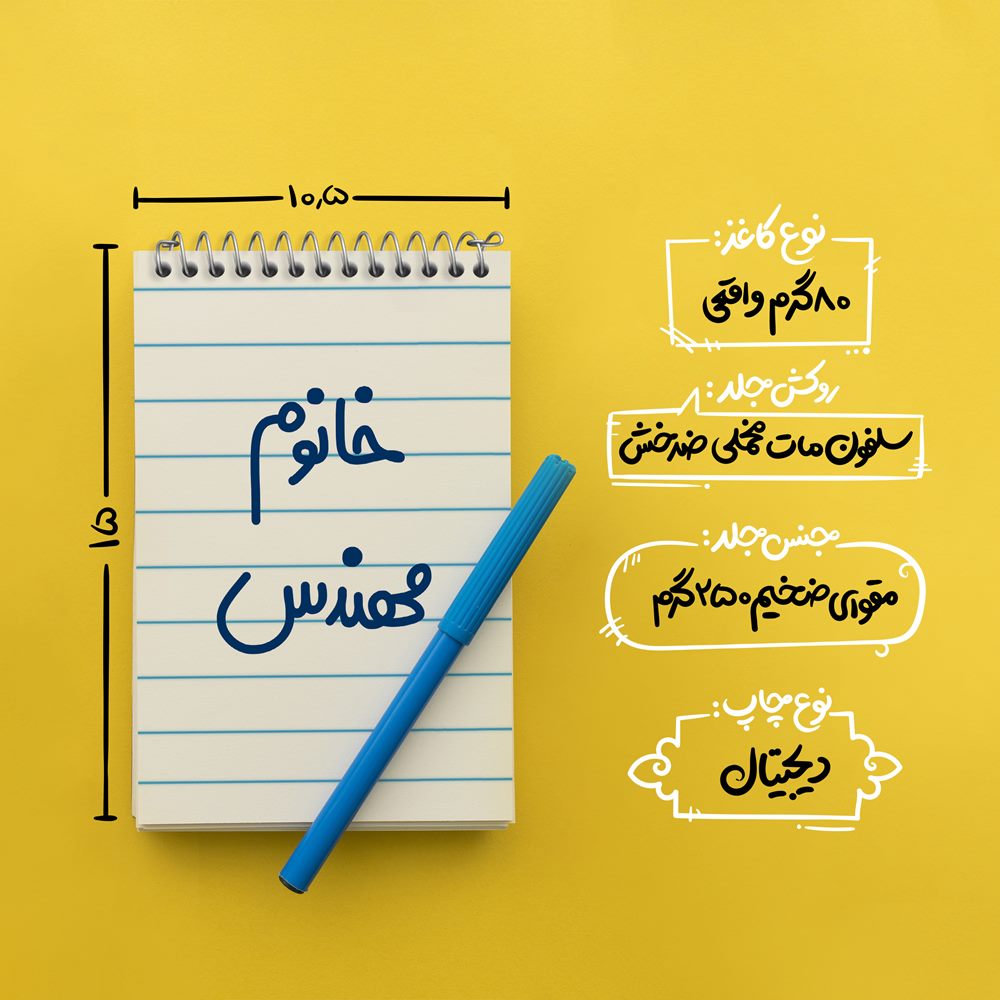 ۱۰٫۵
۱۵
خانوم
مهندس
نوع کاغذ:
۸۰گرم واقعی
روکش مجلد:
سلفون مات مخملی ضدخش
جنس مجلد:
مقوای ضخیم ۲۵۰گرم
نوع چاپ:
دیجیتال